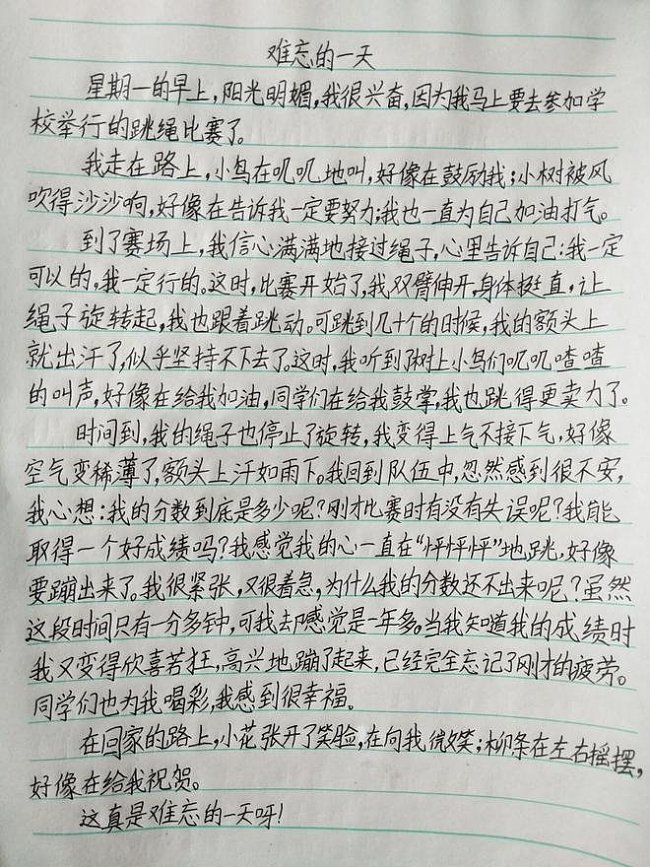 难忘的一天
星期一的早上，阳光明媚，我很兴奋，因为我马上要去参加学
校举行的跳绳比赛了。
我走在路上，小鸟在叽叽地叫，好像在鼓励我；小树被风
吹得沙沙响，好像在告诉我一定要努力；我也一直为自己加油打气。
到了赛场上，我信心满满地接过绳子，心里告诉自己：我一定
可以的，我一定行的。这时，比赛开始了，我双臂伸开，身体挺直，让
绳子旋转起，我也跟着跳动。可跳到几十个的时候，我的额头上
就出汗了，似乎坚持不下去了。这时，我听到了树上小鸟们叽叽喳喳
的叫声，好像在给我加油，同学们在给我鼓掌，我也跳得更卖力了。
时间到，我的绳子也停止了旋转，我变得上气不接下气，好像
空气变稀薄了，额头上汗如雨下。我回到队伍中，忽然感到很不安，
我心想：我的分数到底是多少呢？刚才比赛时有没有失误呢？我能
取得一个好成绩吗？我感觉我的心一直在“怦怦怦”地跳，好像
要蹦出来了。我很紧张，又很着急，为什么我的分数还不出来呢？虽然
这段时间只有一分多钟，可我却感觉是一年多。当我知道我的成绩时
我又变得欣喜若狂，高兴地蹦了起来，已经完全忘记了刚才的疲劳。
同学们也为我喝彩，我感到很幸福。
在回家的路上，小花张开了笑脸，在向我微笑；柳条在左右摇摆，
好像在给我祝贺。
这真是难忘的一天呀！